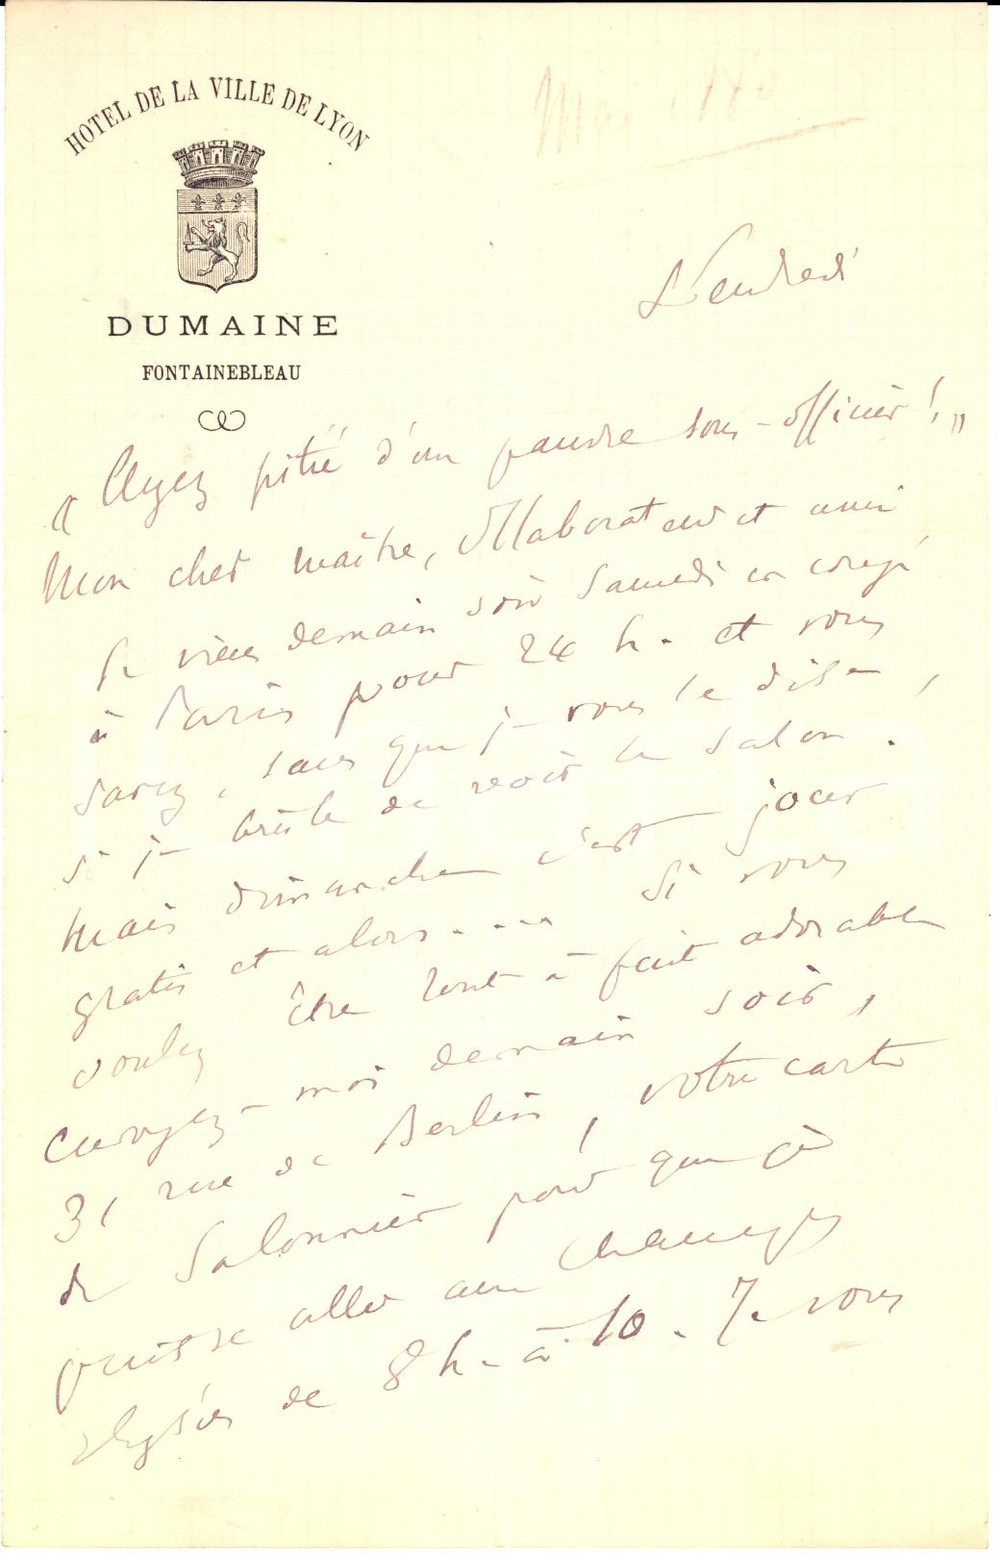 HOTEL DE LA VILLE DE LYON
DUMAINE
FONTAINEBLEAU
Mai 188
Vendredi
"Ayez pitié d'un pauvre sous-officier!"
Mon cher maître, collaborateur et ami
Je viens demain soir Samedi en congé
à Paris pour 24 h. et vous
savez, sans que je vous le dise,
si je brûle de voir le Salon.
Mais dimanche c'est jour
gratis et alors.... Si vous
voulez être tout à fait adorable
envoyez-moi demain soir,
31 rue de Berlin, votre carte
de Salonnier pour que je
puisse aller aux Champs
Elysées de 8h. à 10. Je vous